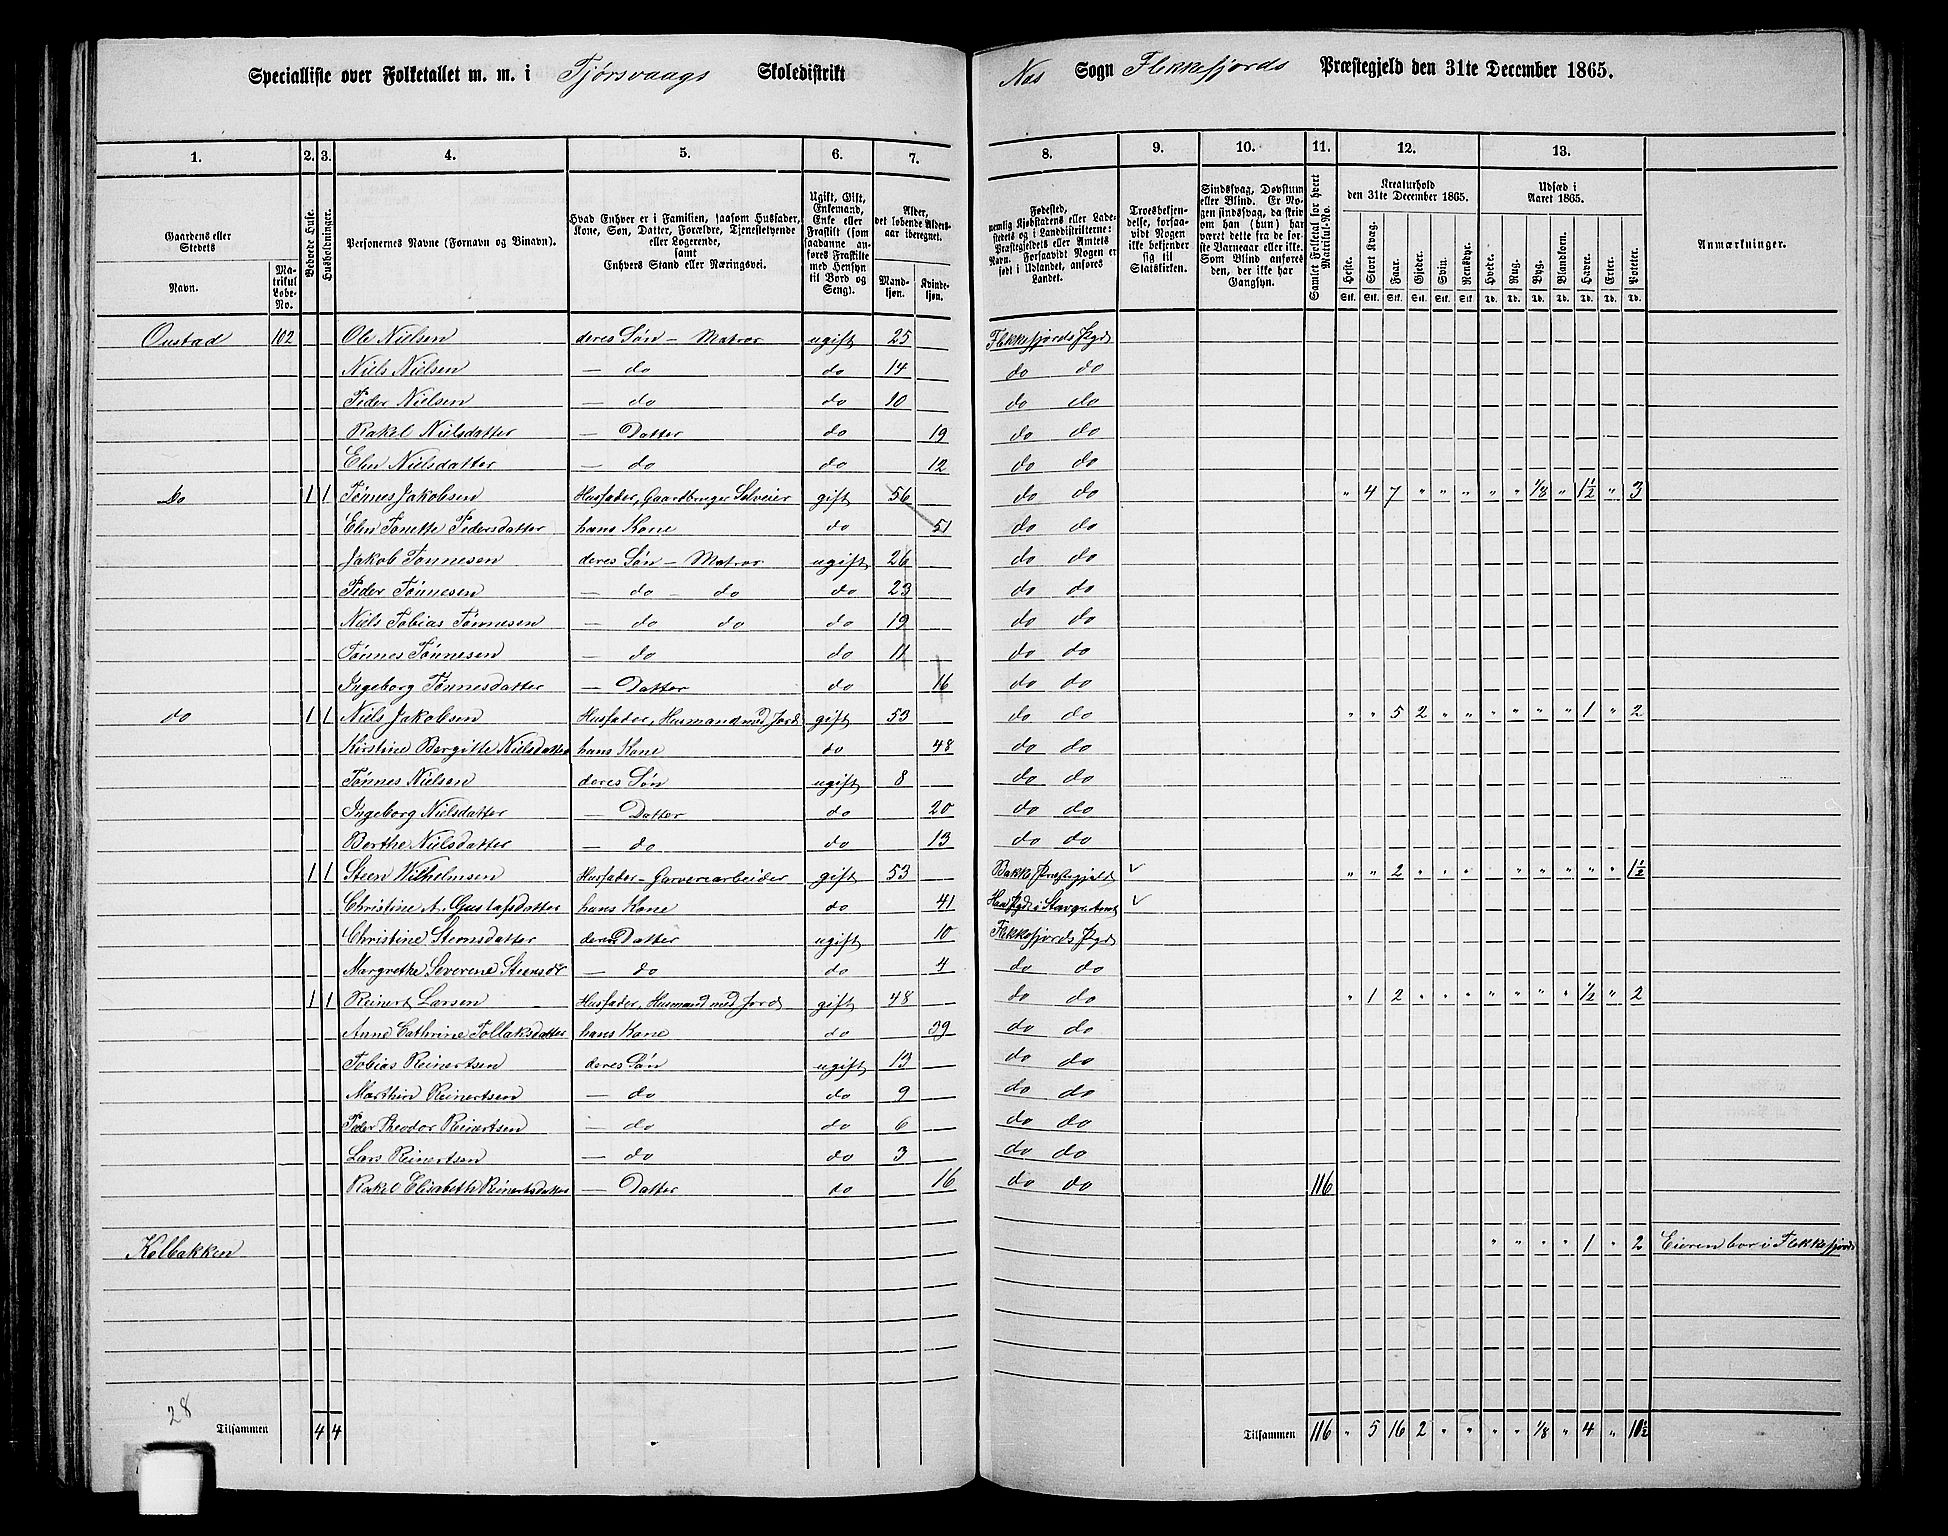 Specialliste over Folketallet m. m. i Tjørsvaags Skoledistrikt Nes Sogn Flekkefjords Præstegjeld den 31te December 1865.
1. 2. 3. 4. 5. 6. 7. 8. 9. 10. 11. 12. 13.
Gaardens eller Stedets
Navn. Matrikul Løbe-No.
Beboede Huse.
Husholdninger.
Personernes Navne (Fornavn og Binavn).
Hvad Enhver er i Familien, saasom Husfader, Kone, Søn, Datter, Forældre, Tjenestetyende eller Logerende, samt Enhvers Stand eller Næringsvei.
Ugift, Gift, Enkemand, Enke eller Fraskilt (som saadanne anføres Fraskilte med Hensyn til Bord og Seng).
Alder, det løbende Aldersaar iberegnet.
Mandkjøn. Kvindekjøn.
Fødested, nemlig Kjøbstadens eller Ladestedets og i Landdistrikterne: Præstegjeldets eller Amtets Navn. Forsaavidt Nogen er født i Udlandet, anføres Landet.
Troesbekjendelse, forsaavidt Nogen ikke bekjender sig til Statskirken.
Sindssvag, Døvstum eller Blind. Er Nogen sindssvag, da skriv om han (hun) har været dette fra de første Barneaar eller ikke. Som Blind anføres den, der ikke har Gangsyn.
Samlet Folketal for hvert Matrikul-No.
Kreaturhold den 31te December 1865.
Heste. Stort Kvæg. Faar. Gjeder. Svin. Rensdyr.
Stk. Stk. Stk. Stk. Stk. Stk.
Udsæd i Aaret 1865.
Hvede. Rug. Byg. Blandkorn. Havre. Erter. Poteter.
Td. Td. Td. Td. Td. Td. Td.
Anmærkninger.
Oustad 102 Ole Nielsen deres Søn - Matros ugift 25 Flekkefjords Pgd
Niels Nielsen — do do 14 do do
Peder Nielsen — do do 10 do do
Rakel Nielsdatter — Datter do 19 do do
Elen Nielsdatter — do do 12 do do
Do 1 1 Tønnes Jakobsen Husfader, Gaardbruger Selveier gift 56 do do " 4 7 " " " " " 1/8 " 1 1/2 " 3
Elen Tonette Pedersdatter hans Kone do 51 do do
Jakob Tønnesen deres Søn - Matros ugift 26 do do
Peder Tønnesen — do - do do 23 do do
Niels Tobias Tønnesen — do do do 19 do do
Tønnes Tønnesen — do do 11 do do
Ingeborg Tønnesdatter — Datter do 16 do do
do 1 1 Niels Jakobsen Husfader, Husmand med Jord gift 53 do do " " 5 2 " " " " " " 1 " 2
Kirstine Bergitte Nielsdatter hans Kone do 48 do do
Tønnes Nielsen deres Søn ugift 8 do do
Ingeborg Nielsdatter — Datter do 20 do do
Berthe Nielsdatter — do do 13 do do
1 1 Steen Wilhelmsen Husfader - Garveriarbeider gift 53 Bakke Præstegjeld ✓ " " 2 " " " " " " " " 1 1/2
Christine A. Gustafsdatter hans Kone do 41 Haa Pgd i Stavgr. Amt ✓
Christine Stensdatter deres Datter ugift 10 Flekkefjords Pgd
Margrethe Severene Steensdr — do do 4 do do
1 1 Reinert Larsen Husfader, Husmand med Jord gift 48 do do " 1 2 " " " " " " " 1/2 " 2
Anne Cathrine Tollaksdatter hans Kone do 39 do do
Tobias Reinertsen deres Søn ugift 13 do do
Marthin Reinertsen — do do 9 do do
Peder Theodor Reinertsen — do do 6 do do
Lars Reinertsen — do do 3 do do
Rakel Elisabeth Reinertsdatter — Datter do 16 do do 116
Kolbakken " " " " 1 " 2 Eieren bor i Flekkefjord
28
Tilsammen 4 4 Tilsammen 116 " 5 16 2 " " " " 1/8 " 4 " 10 1/2